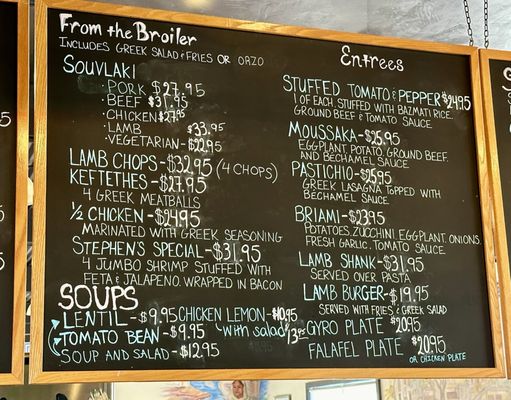 From the Broiler
INCLUDES GREEK SALAD & FRIES OR ORZO
SOUVLAKI
· PORK $27.95
· BEEF $31.95
· CHICKEN $27.95
· LAMB $33.95
· VEGETARIAN - $22.95
LAMB CHOPS - $32.95 (4 CHOPS)
KEFTETHES - $27.95
4 GREEK MEATBALLS
½ CHICKEN - $24.95
MARINATED WITH GREEK SEASONING
STEPHEN'S SPECIAL - $31.95
4 JUMBO SHRIMP STUFFED WITH
FETA & JALAPENO. WRAPPED IN BACON
SOUPS
LENTIL - $9.95 CHICKEN LEMON - $10.95
TOMATO BEAN - $9.95 with salad $13.95
SOUP AND SALAD - $12.95
Entrees
STUFFED TOMATO & PEPPER $24.95
1 OF EACH, STUFFED WITH BAZMATI RICE,
GROUND BEEF & TOMATO SAUCE
MOUSSAKA - $25.95
EGGPLANT, POTATO, GROUND BEEF,
AND BECHAMEL SAUCE
PASTICHIO - $25.95
GREEK LASAGNA TOPPED WITH
BECHAMEL SAUCE
BRIAMI - $23.95
POTATOES, ZUCCHINI, EGGPLANT, ONIONS
FRESH GARLIC, TOMATO SAUCE
LAMB SHANK - $31.95
SERVED OVER PASTA
LAMB BURGER - $19.95
SERVED WITH FRIES & GREEK SALAD
GYRO PLATE $20.95
FALAFEL PLATE $20.95
OR CHICKEN PLATE